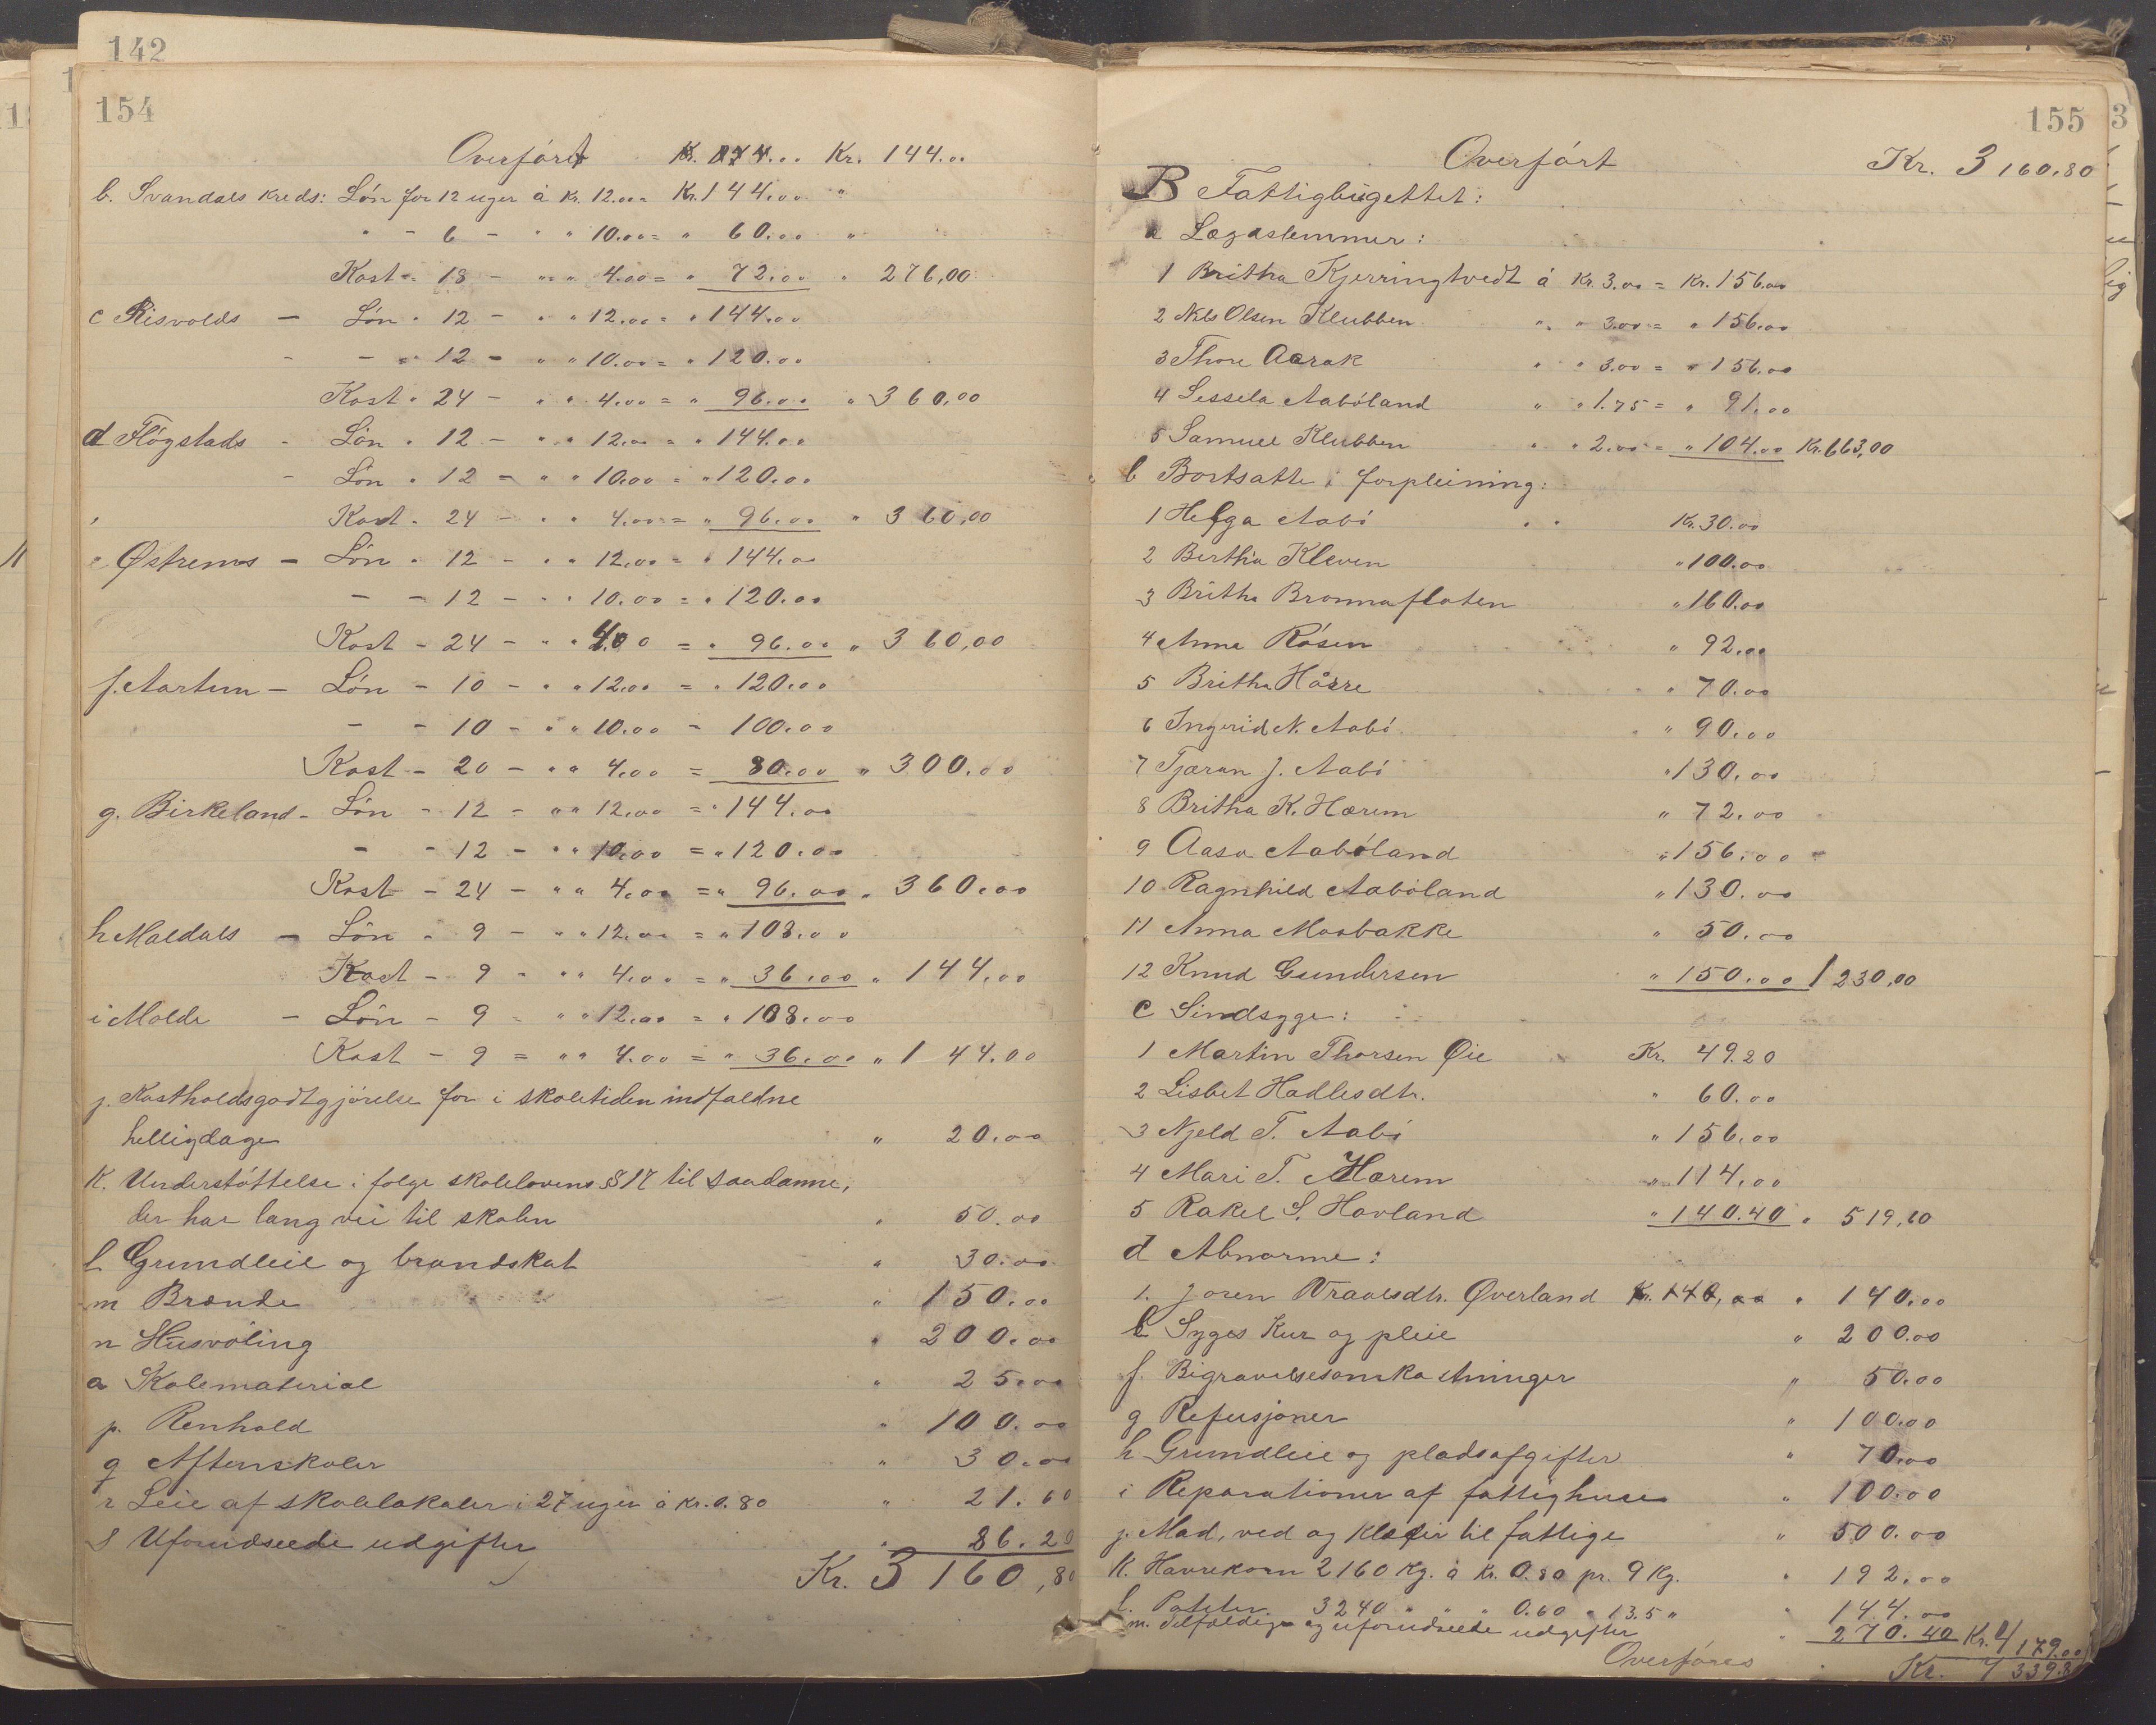 142
154
Overført Kr. 144.00
b. Svandals Kreds: Løn for 12 uger à Kr. 12.00 = Kr. 144.00 "
" - 6 - " " 10.00 = " 60.00 "
Kost " 18 - " " 4.00 = " 72.00 " 276,00
c Risvolds - Løn " 12 - " " 12.00 = " 144.00
- - " 12 - " " 10.00 = " 120.00
Kost " 24 - " " 4.00 = " 96.00 " 360,00
d Fløgstads - Løn " 12 - " " 12.00 = " 144.00
- Løn " 12 - " " 10.00 = " 120.00
Kost " 24 - " " 4.00 = " 96.00 " 360,00
e Østrems - Løn " 12 - " " 12.00 = " 144.00
- - 12 - " " 10.00 = " 120.00
Kost - 24 - " " 4.00 = " 96.00 " 360,00
f. Aartun - Løn - 10 - " " 12.00 = " 120.00
- - 10 - " " 10.00 - 100.00
Kost - 20 - " " 4.00 = 80.00 " 300.00
g. Birkeland - Løn - 12 - " " 12.00 = " 144.00
- - 12 - " " 10.00 = " 120.00
Kost - 24 - " " 4.00 = " 96.00 " 360.00
h Maldals - Løn - 9 - " " 12.00 = " 108.00
Kost - 9 - " " 4.00 = " 36.00 " 144.00
i Molde - Løn - 9 = " " 12.00 = " 108.00
Kost - 9 = " " 4.00 = " 36.00 " 144.00
j. Kostholdsgodtgjørelse for i skoletiden indfaldne
helligdage " 20.00
K. Understøttelse i følge skolelovens § 17 til saadanne,
der har lang vei til skolen " 50.00
l Grundleie og brandskat " 30.00
m Brænde " 150.00
n Husvøling " 200.00
o Skolematerial " 25.00
p. Renhold " 100.00
q Aftenskoler " 30.00
r Leie af skolelokaler i 27 uger à Kr. 0.80 " 21.60
s Uforudseede udgifter " 86.20
Kr. 3160,80
155
3
Overført Kr. 3160.80
B Fattigbugettet:
a Lægdslemmer:
1 Britha Kjerringtvedt à Kr. 3.00 = Kr. 156.00
2 Nils Olsen Klubben " " 3.00 = " 156.00
3 Thore Aarak " " 3.00 = " 156.00
4 Sessela Aabøland " " 1.75 = " 91.00
5 Samuel Klubben " " 2.00 = " 104.00 Kr. 663,00
b Bortsatte i forpleining:
1 Helga Aabø " " Kr. 30.00
2 Bertha Kleven " 100.00
3 Britha Bronnafloten " 160.00
4 Anna Røsen " 92.00
5 Britha Haare " 70.00
6 Ingerid N. Aabø " 90.00
7 Tjæran J. Aabø " 130.00
8 Britha K. Hærem " 72.00
9 Aasa Aabøland " 156.00
10 Ragnhild Aabøland " 130.00
11 Anna Moabakke " 50.00
12 Knud Gundersen " 150.00 1230,00
c Sindsyge:
1 Martin Thorsen Øie Kr. 49.20
2 Lisbet Hadlesdtr. " 60.00
3 Njeld T. Aabø " 156.00
4 Mari T. Hærem " 114.00
5 Rakel S. Havland " 140.40 " 519,60
d Abnorme:
1. Joren Vraalsdtr. Øverland Kr. 140,00 " 140.00
e Syges Kur og pleie " 200.00
f. Bigravelsesomkostninger " 50.00
g Refusjoner " 100.00
h Grundleie og pladsafgifter " 70.00
i Reparationer af fattighuse " 100.00
j. Mad, ved og klæder til fattige " 500.00
K. Havrekorn 2160 Kg. à Kr. 0.80 pr. 9 Kg. " 192.00
l. Poteter 3240 " " " 0.60 " 13.5 " " 144.00
m. Tilfældige og uforudseede udgifter " 270.40 Kr. 4179.00
Overføres Kr. 7339.8